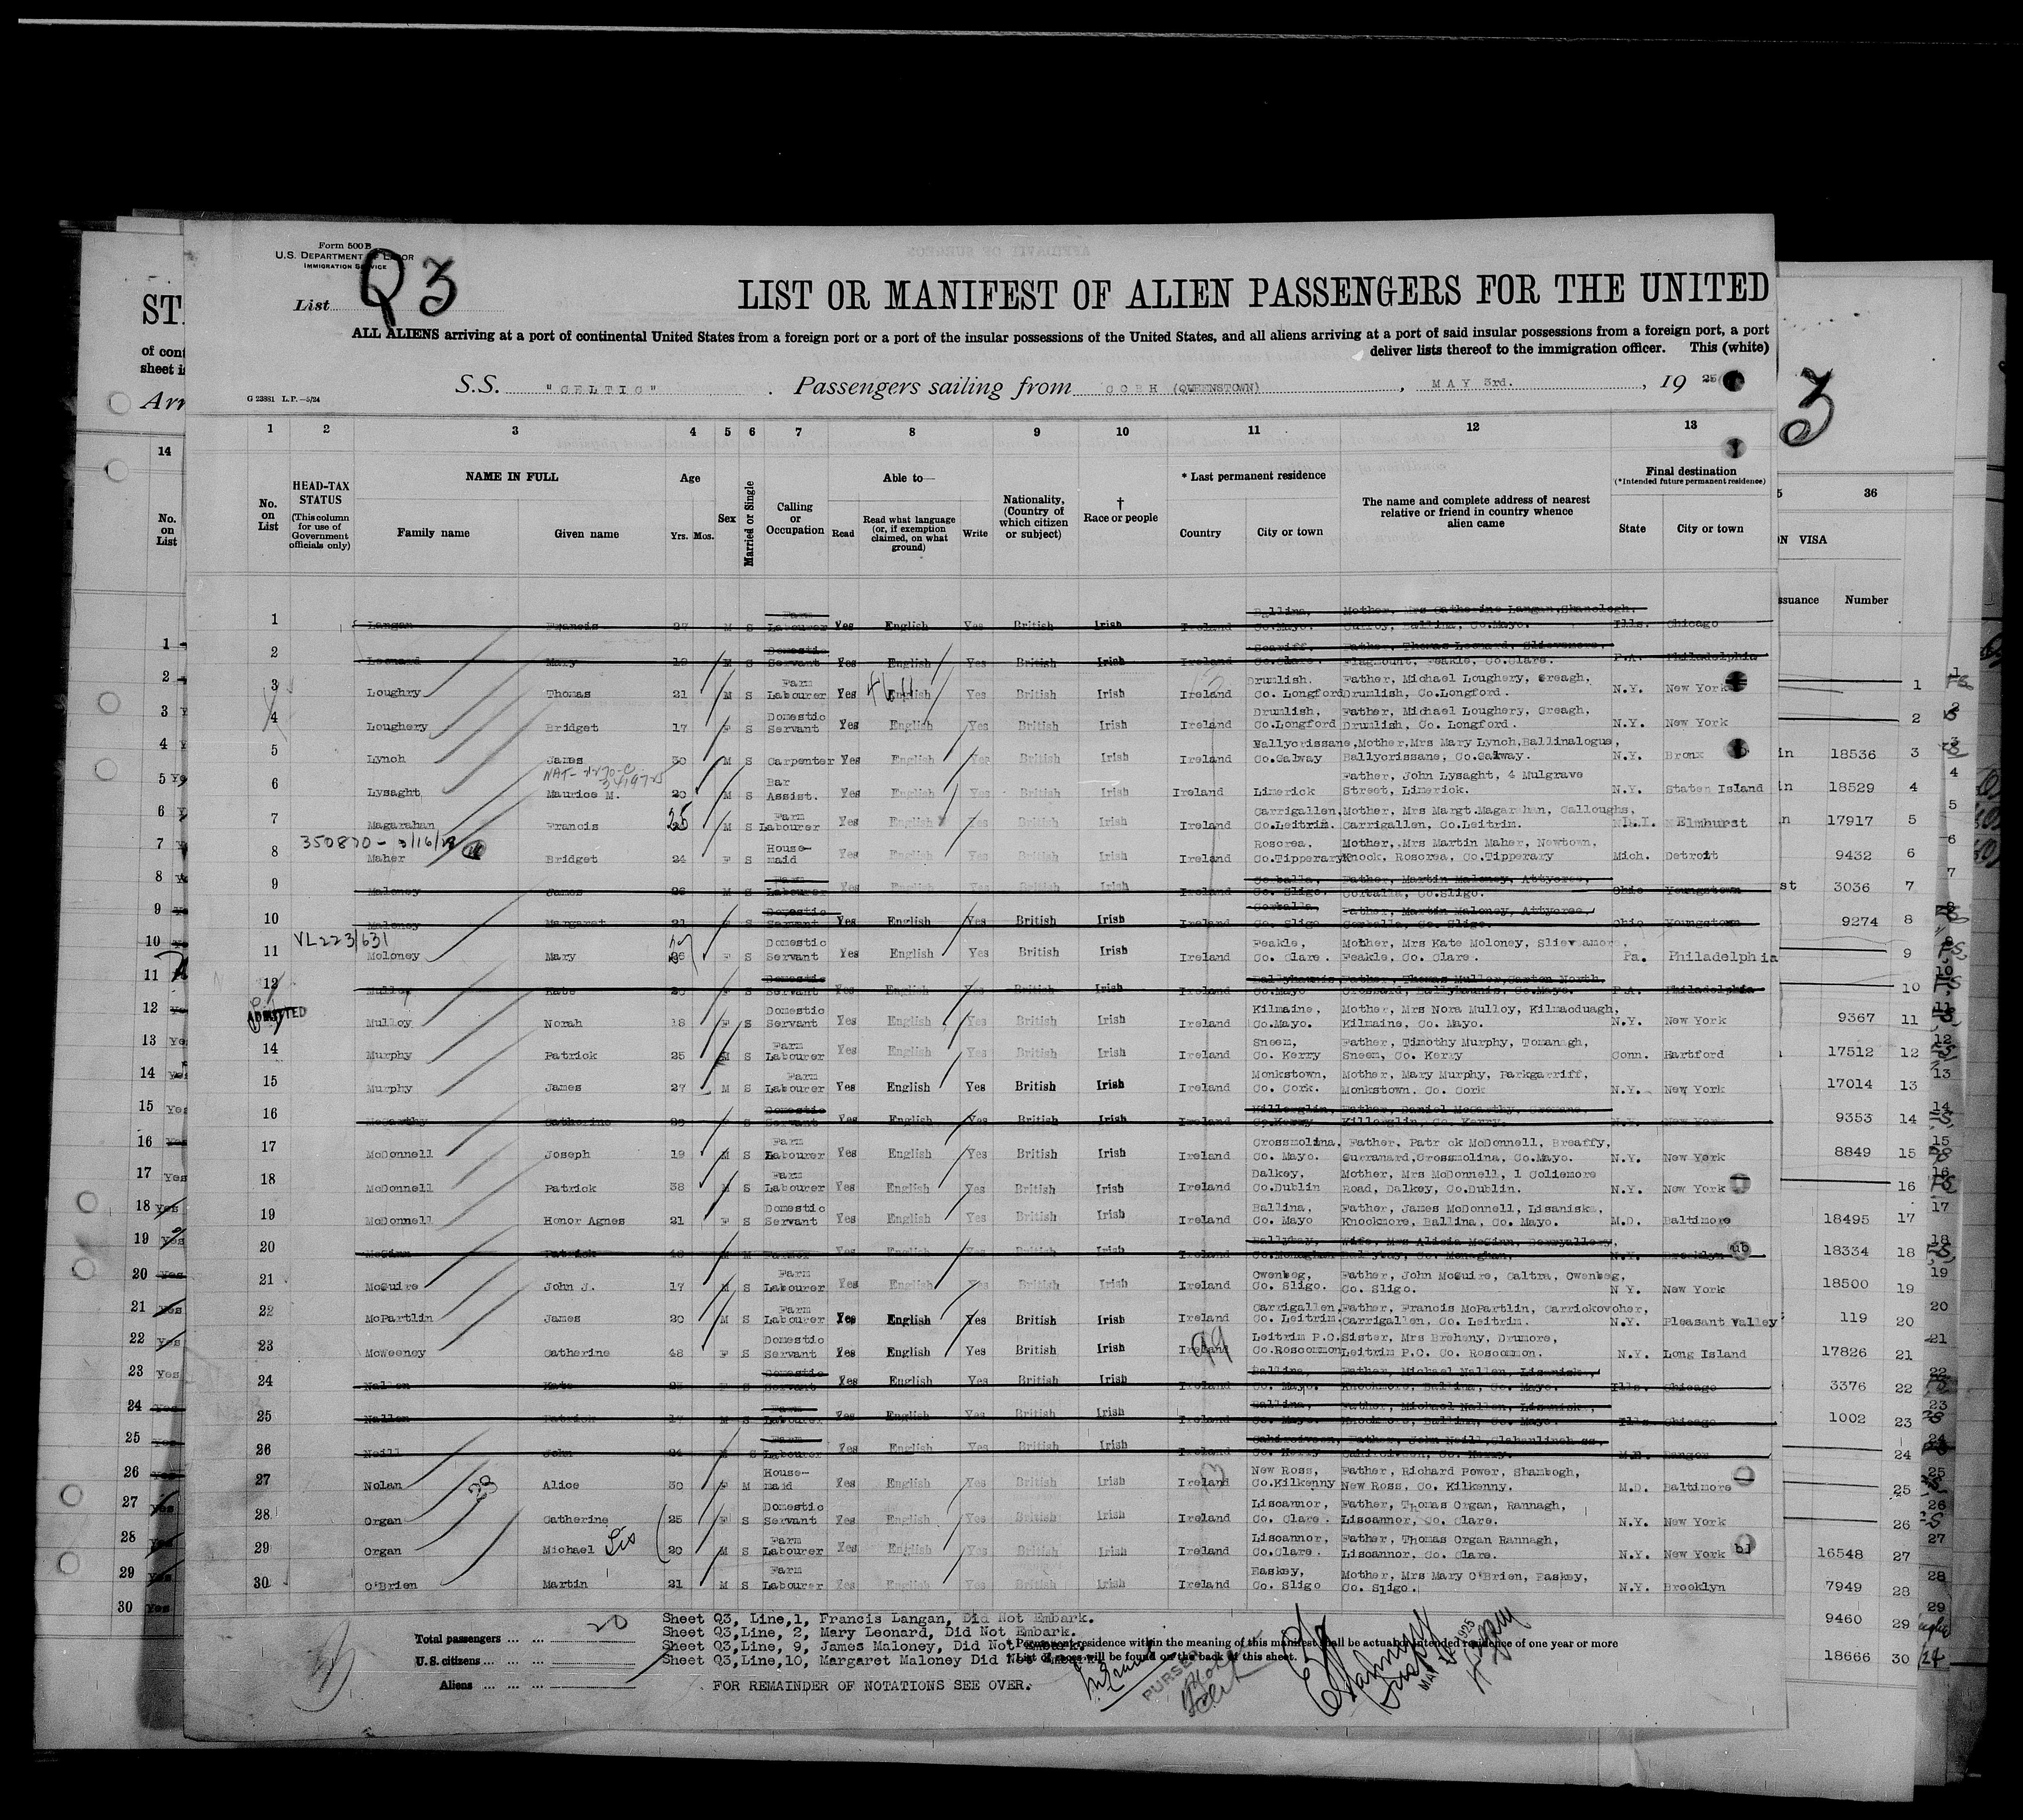 Form 500 B
U.S. DEPARTMENT OF LABOR
IMMIGRATION SERVICE
List Q3
LIST OR MANIFEST OF ALIEN PASSENGERS FOR THE UNITED
ALL ALIENS arriving at a port of continental United States from a foreign port or a port of the insular possessions of the United States, and all aliens arriving at a port of said insular possessions from a foreign port, a port
deliver lists thereof to the immigration officer. This (white)
S.S. "CELTIC". Passengers sailing from COBH (QUEENSTOWN), MAY 3rd., 19 25
G 23881 L.P.—5/24
1 2 3 4 5 6 7 8 9 10 11 12 13
No. on List
HEAD-TAX STATUS (This column for use of Government officials only)
NAME IN FULL
Family name Given name
Age Yrs. Mos.
Sex
Married or Single
Calling or Occupation
Able to—
Read Read what language (or, if exemption claimed, on what ground) Write
Nationality, (Country of which citizen or subject)
† Race or people
* Last permanent residence
Country City or town
The name and complete address of nearest relative or friend in country whence alien came
Final destination (*Intended future permanent residence)
State City or town
1 Langan Francis 27 M S Farm Labourer Yes English Yes British Irish Ireland Ballina, Co.Mayo. Mother, Mrs Catherine Langan, Ballina, Co.Mayo. Ills. Chicago
2 Leonard Mary 19 S Domestic Servant Yes English Yes British Irish Ireland Scariff, Co.Clare. Father, Thomas Leonard, Slievemore, Flagmount, Feakle, Co.Clare. P.A. Philadelphia
3 Loughry Thomas 21 M S Farm Labourer Yes English Yes British Irish Ireland Drumlish, Co. Longford Father, Michael Loughery, Greagh, Drumlish, Co.Longford. N.Y. New York
4 Loughery Bridget 17 F S Domestic Servant Yes English Yes British Irish Ireland Drumlish, Co.Longford Father, Michael Loughery, Greagh, Drumlish, Co. Longford. N.Y. New York
5 Lynch James 30 M S Carpenter Yes English Yes British Irish Ireland Ballycrissane, Co.Galway Mother, Mrs Mary Lynch, Ballinalogue, Ballycrissane, Co.Galway. N.Y. Bronx
6 Lysaght Maurice M. 20 M S Bar Assist. Yes English Yes British Irish Ireland Limerick Father, John Lysaght, 4 Mulgrave Street, Limerick. N.Y. Staten Island
7 Magarahan Francis 25 M S Farm Labourer Yes English Yes British Irish Ireland Carrigallen, Co.Leitrim. Mother, Mrs Margt.Magarahan, Calloughs, Carrigallen, Co.Leitrim. L.I. Elmhurst
350870 - 3/16/
8 Maher Bridget 24 F S House-maid Yes English Yes British Irish Ireland Roscrea, Co.Tipperary Mother, Mrs Martin Maher, Newtown, Knock, Roscrea, Co.Tipperary Mich. Detroit
9 Maloney James 26 M S Farm Labourer Yes English Yes British Irish Ireland Corballa, Co. Sligo. Father, Martin Maloney, Attyoree, Corballa, Co.Sligo. Ohio Youngstown
10 Maloney Margaret 21 S Domestic Servant Yes English Yes British Irish Ireland Corballa, Co. Sligo Father, Martin Maloney, Attyoree, Corballa, Co. Sligo. Ohio Youngstown
VL223/631
11 Moloney Mary F S Domestic Servant Yes English Yes British Irish Ireland Feakle, Co. Clare. Mother, Mrs Kate Moloney, Slieveamore, Feakle, Co. Clare. Pa. Philadelphia
12 Kate 20 S Domestic Servant Yes English Yes British Irish Ireland Ballyhaunis, Co.Mayo Father, Thomas Muller, Carton North, Crossard, Ballyhaunis, Co.Mayo. P.A. Philadelphia
ADMITTED
Mulloy Norah 18 F S Domestic Servant Yes English Yes British Irish Ireland Kilmaine, Co.Mayo. Mother, Mrs Nora Mulloy, Kilmacduagh, Kilmaine, Co. Mayo. N.Y. New York
14 Murphy Patrick 25 M S Farm Labourer Yes English Yes British Irish Ireland Sneem, Co. Kerry Father, Timothy Murphy, Tomanagh, Sneem, Co. Kerry Conn. Hartford
15 Murphy James 27 M S Farm Labourer Yes English Yes British Irish Ireland Monkstown, Co. Cork. Mother, Mary Murphy, Parkgarriff, Monkstown. Co. Cork N.Y. New York
16 McCarthy Catherine 20 S Domestic Servant Yes English Yes British Irish Ireland Killorglin, Co.Kerry Father, Daniel McCarthy, Cromane, Killorglin, Co. Kerry. N.Y. New York
17 McDonnell Joseph 19 M S Farm Labourer Yes English Yes British Irish Ireland Crossmolina, Co. Mayo. Father, Patr ck McDonnell, Breaffy, Gurranard, Crossmolina, Co.Mayo. N.Y. New York
18 McDonnell Patrick 38 M S Farm Labourer Yes English Yes British Irish Ireland Dalkey, Co.Dublin Mother, Mrs McDonnell, 1 Coliemore Road, Dalkey, Co.Dublin. N.Y. New York
19 McDonnell Honor Agnes 21 F S Domestic Servant Yes English Yes British Irish Ireland Ballina, Co. Mayo Father, James McDonnell, Lisaniska, Knockmore, Ballina, Co. Mayo. M.D. Baltimore
20 McGinn Patrick 48 M M Farmer Yes English Yes British Irish Ireland Ballybay, Co.Monaghan Wife, Mrs Alicia McGinn, Derryallery, Ballybay, Co. Monaghan. N.Y. Brooklyn
21 McGuire John J. 17 M S Farm Labourer Yes English Yes British Irish Ireland Owenbeg, Co. Sligo. Father, John McGuire, Caltra, Owenbeg, Co. Sligo. N Y. New York
22 McPartlin James 20 M S Farm Labourer Yes English Yes British Irish Ireland Carrigallen, Co. Leitrim. Father, Francis McPartlin, Carrickovoher, Carrigallen, Co. Leitrim. N.Y. Pleasant Valley
23 McWeeney Catherine 48 F S Domestic Servant Yes English Yes British Irish Ireland Leitrim P.O. Co.Roscommon Sister, Mrs Brehany, Drumore, Leitrim P.O. Co. Roscommon. N.Y. Long Island
24 Nallen Kate 23 F S Domestic Servant Yes English Yes British Irish Ireland Ballina, Co. Mayo. Father, Michael Nallen, Lisanisk, Knockmore, Ballina, Co. Mayo. Ills. Chicago
25 Nallen Patrick 17 M S Farm Labourer Yes English Yes British Irish Ireland Ballina, Co. Mayo. Father, Michael Nallen, Lisaniska, Knockmore, Ballina, Co. Mayo. Ills. Chicago
26 Neill John 24 M S Farm Labourer Yes English Yes British Irish Ireland Cahirciveen, Co. Kerry Father, John Neill, Cahirciveen, Co. Kerry. M.E. Bangor
27 Nolan Alice 30 F M House-maid Yes English Yes British Irish Ireland New Ross, Co.Kilkenny Father, Richard Power, Shambogh, New Ross. Co. Kilkenny. M.D. Baltimore
28 Organ Catherine 25 F S Domestic Servant Yes English Yes British Irish Ireland Liscannor, Co. Clare. Father, Thomas Organ, Rannagh, Liscannor, Co. Clare. N.Y. New York
29 Organ Michael 20 M S Farm Labourer Yes English Yes British Irish Ireland Liscannor, Co.Clare. Father, Thomas Organ Rannagh, Liscannor, Co. Clare. N.Y. New York
30 O'Brien Martin 21 M S Farm Labourer Yes English Yes British Irish Ireland Easkey, Co. Sligo Mother, Mrs Mary O'Brien, Easkey, Co. Sligo. N.Y. Brooklyn
Total passengers ... ... 20
U.S. citizens ... ...
Aliens ... ... ...
Sheet Q3, Line,1, Francis Langan, Did Not Embark.
Sheet Q3,Line, 2, Mary Leonard, Did Not Embark.
Sheet Q3,Line, 9, James Maloney, Did Not Embark.
Sheet Q3,Line,10, Margaret Maloney Did Not Embark
FOR REMAINDER OF NOTATIONS SEE OVER.
* Permanent residence within the meaning of this manifest shall be actual or intended residence of one year or more
† List of races will be found on the back of this sheet.
PURSER
ST
of cont
sheet i
Arr
14
No. on List
3
36
ON VISA
ssuance Number
1
2
in 18536 3
in 18529 4
n 17917 5
9432 6
st 3036 7
9274 8
9
10
9367 11
17512 12
17014 13
9353 14
8849 15
16
18495 17
18334 18
18500 19
119 20
17826 21
3376 22
1002 23
24
25
26
16548 27
7949 28
9460 29
18666 30